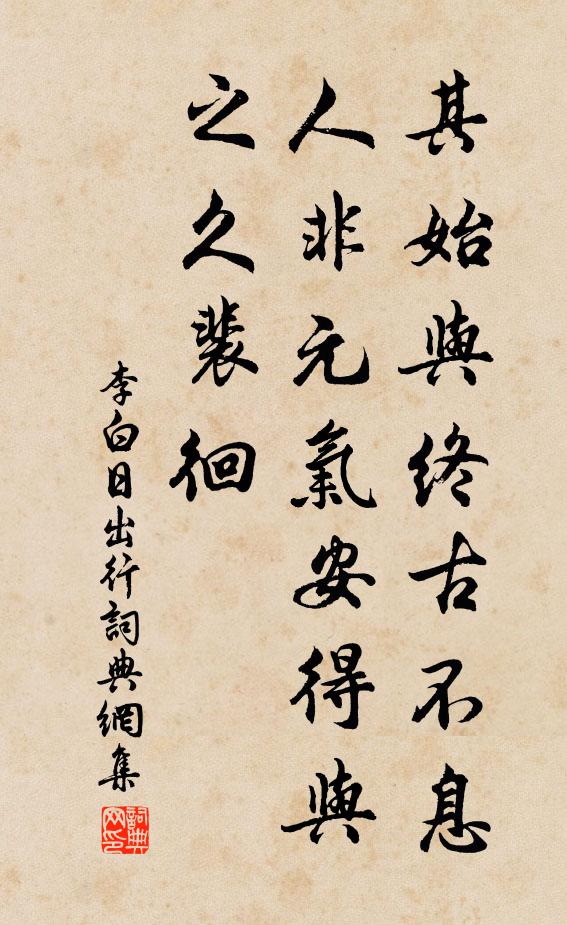 其始與終古不息
人非元氣安得與
之久裴徊
李白日出行詞典網集
詞典网印